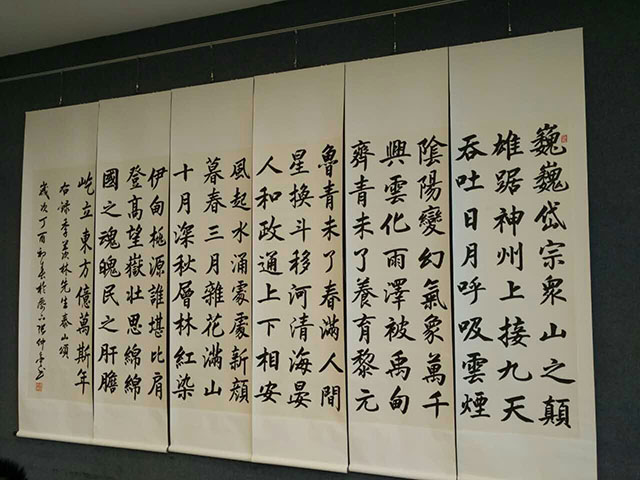 巍巍岱宗衆山之顛
雄踞神州上接九天
吞吐日月呼吸雲煙
陰陽變幻氣象萬千
興雲化雨澤被禹甸
齊青未了養育黎元
魯青未了春滿人間
星換斗移河清海晏
人和政通上下相安
風起水涌處處新顏
暮春三月雜花滿山
十月深秋層林紅染
伊甸桃源誰堪比肩
登高望嶽壯思綿綿
國之魂魄民之肝膽
屹立東方億萬斯年
右錄季羨林先生泰山頌
歲次丁酉初春於張仲亭